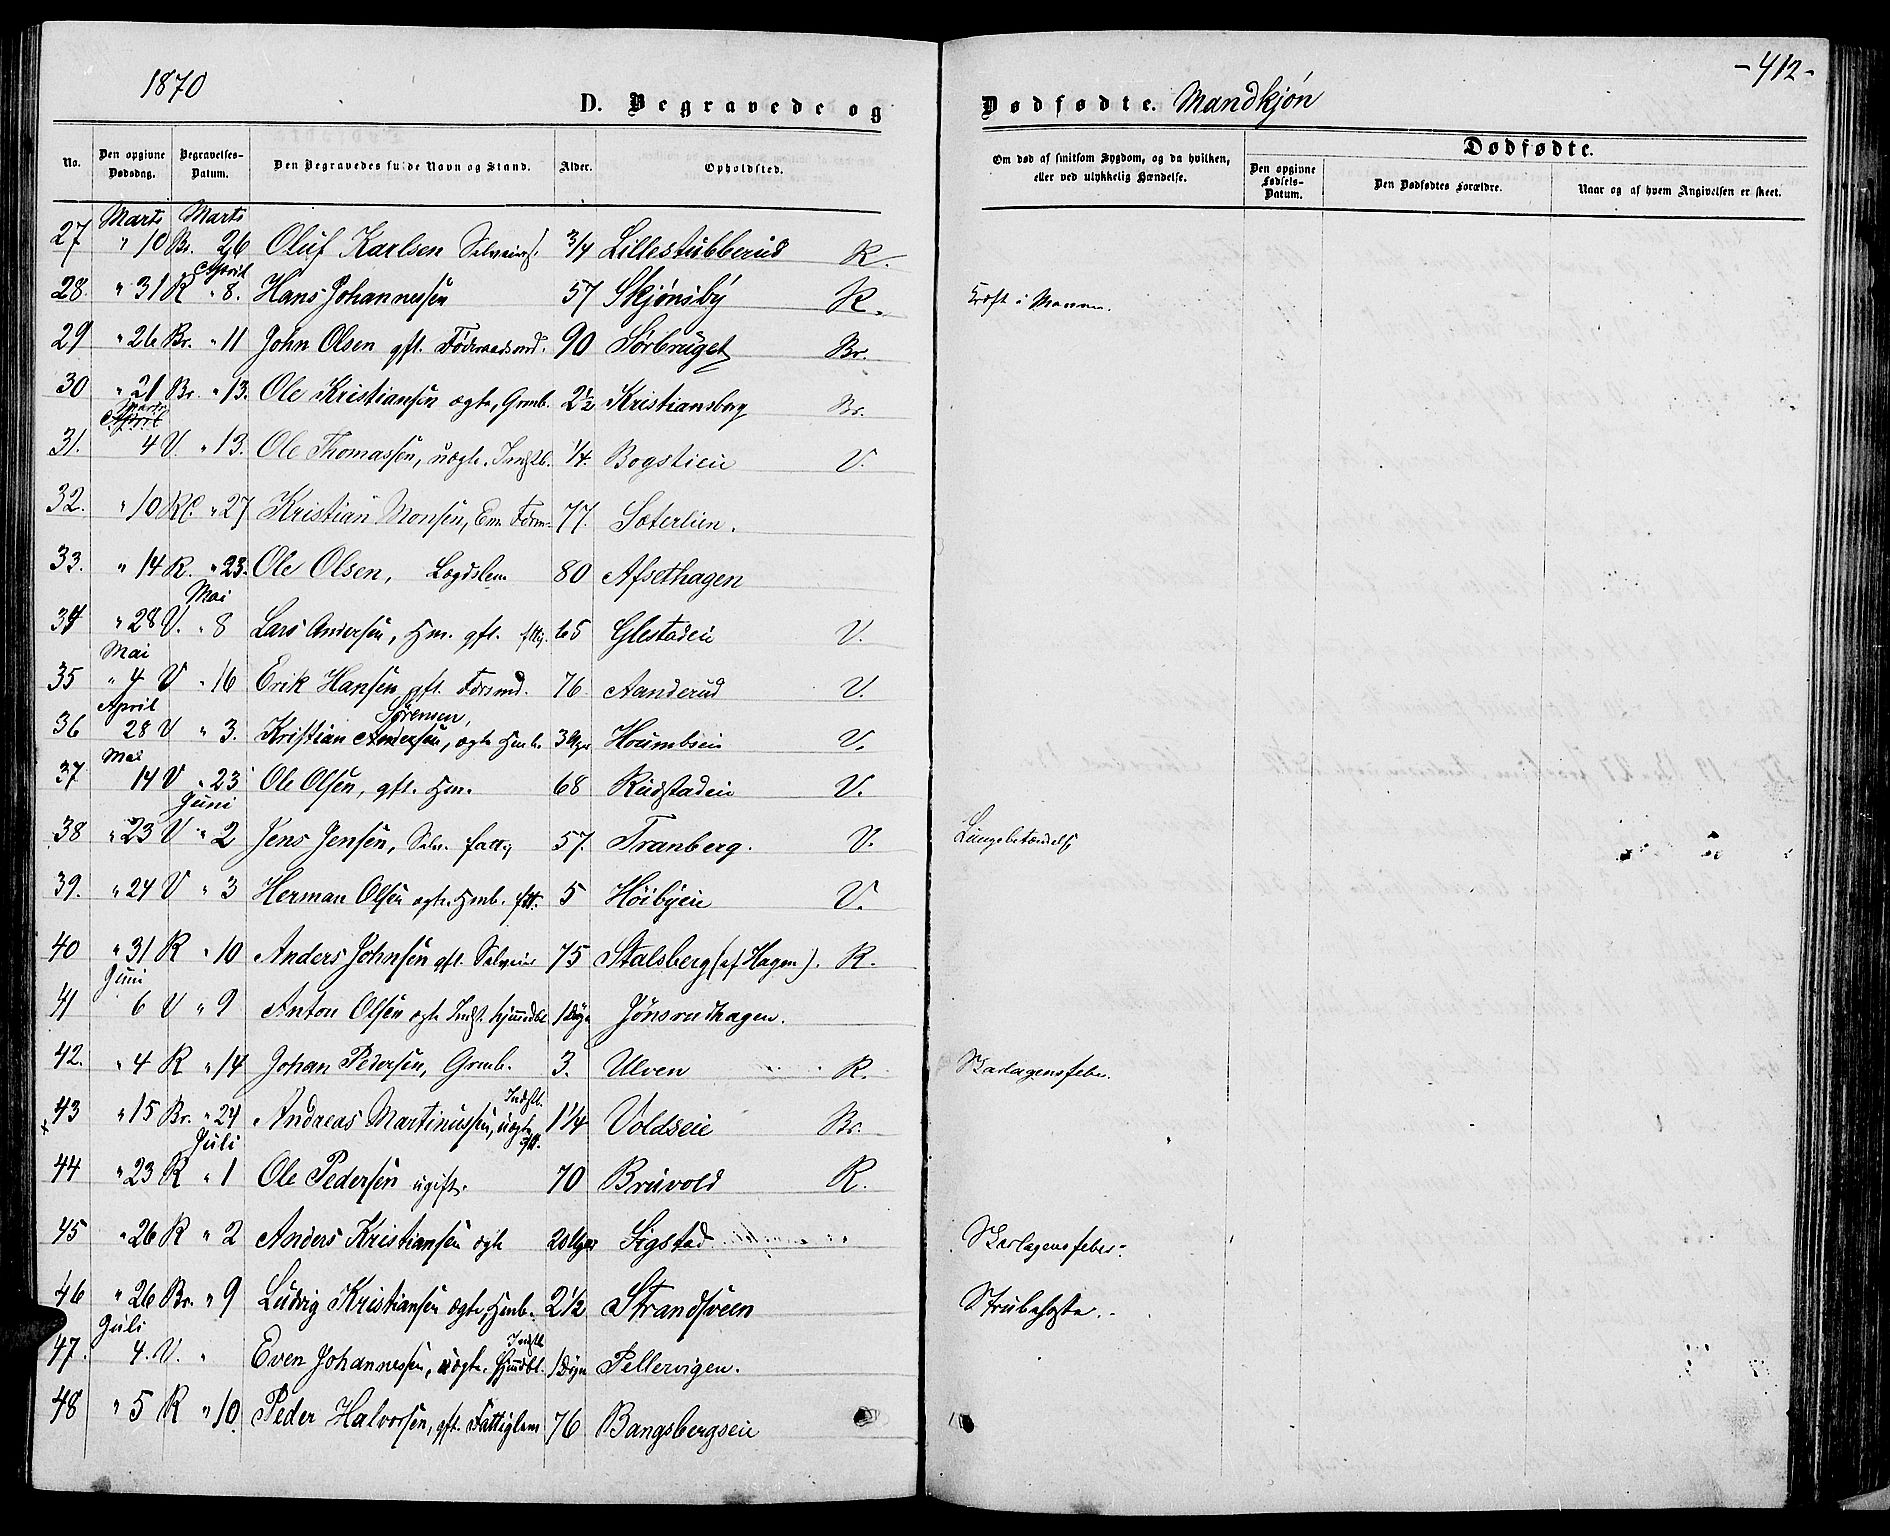 1870
D. Begravede og
No. Den opgivne Dødsdag. Begravelses-Datum. Den Begravedes fulde Navn og Stand. Alder. Opholdsted.
Marts Marts
27 " 10 Br. 26 Oluf Karlsen 3/4 Lillestubberud R.
April
28. " 31 R " 8. Hans Johannessen 57 Skjønsby R.
29 " 26 Br. " 11 John Olsen gft. Føderaadsmd. 90 Sørbruget Br.
30 " 21 Br. " 13. Ole Kristiansen ægte, Grmb. 2½ Kristiansborg Br.
Marts
April
31. 4 V. " 13. Ole Thomassen, uægte, Indstb. 1/4. Bogstieie V.
32. " 10 R " 27 Kristian Monsen, Em. Form. 77. Sæterlien.
33. " 14 R. " 23. Ole Olsen, Lægdslem 80 Afsethagen
Mai
34 " 28 V. " 8 Lars Andersen, Hm. gft. fttg. 65 Glestadeie V.
Mai
35 " 4 V " 16 Erik Hansen gft. Forsmd. 76 Aanderud V.
April Sørensen,
36 28 V " 3. Kristian Andersen, ægte Hmb. 3 Uger Houmbeie V.
Mai
37 14 V " 23 Ole Olsen, gft. Hm. 68 Rudstadeie V.
Juni
38 " 23 V " 2 Jens Jensen, Selv. fattig 57. Tranberg. V.
39. " 24 V " 3 Herman Olsen ægte Hmb. ftt. 5 Høibyeie V.
40 " 31 R " 10 Anders Johnsen gft. Selveier 75 Stalsberg (af Hagen). R.
Juni
41 6 V " 9 Anton Olsen ægte Indst. hjmdbt 1 Døgn Jønsrudhagen.
42. " 4 R " 14 Johan Pedersen, Grmb. 3. Ulven R.
Indstb.
43 " 15 Br. " 24 Andreas Martinussen, uægte 1¼ Voldseie Br.
Juli ftt.
44 " 23 R " 1 Ole Pedersen ugift. 70 Bruvold R.
45 " 26 R " 2 Anders Kristiansen ægte 20 Uger Sigstad
46 " 26 Br. " 9 Ludvig Kristiansen ægte, Hmb. 2½ Strandsveen
Juli Indstb
47. 4. V. " Even Johannessen, uægte, hjmdbt. 1 Døgn Pellervigen.
48 " 5 R " 10. Peder Halvorsen, gft. Fattiglem 76 Bangsbergseie
-412-
Dødfødte. Mandkjøn
Om død af smitsom Sygdom, og da hvilken, eller ved ulykkelig Hændelse. Dødfødte.
Den opgivne Fødsels-Datum. Den Dødfødtes Forældre. Naar og af hvem Angivelsen er skeet.
Kræft i Maven.
Lungebetændelse
Skarlagensfeber.
Skarlagensfeber.
Strubehoste.